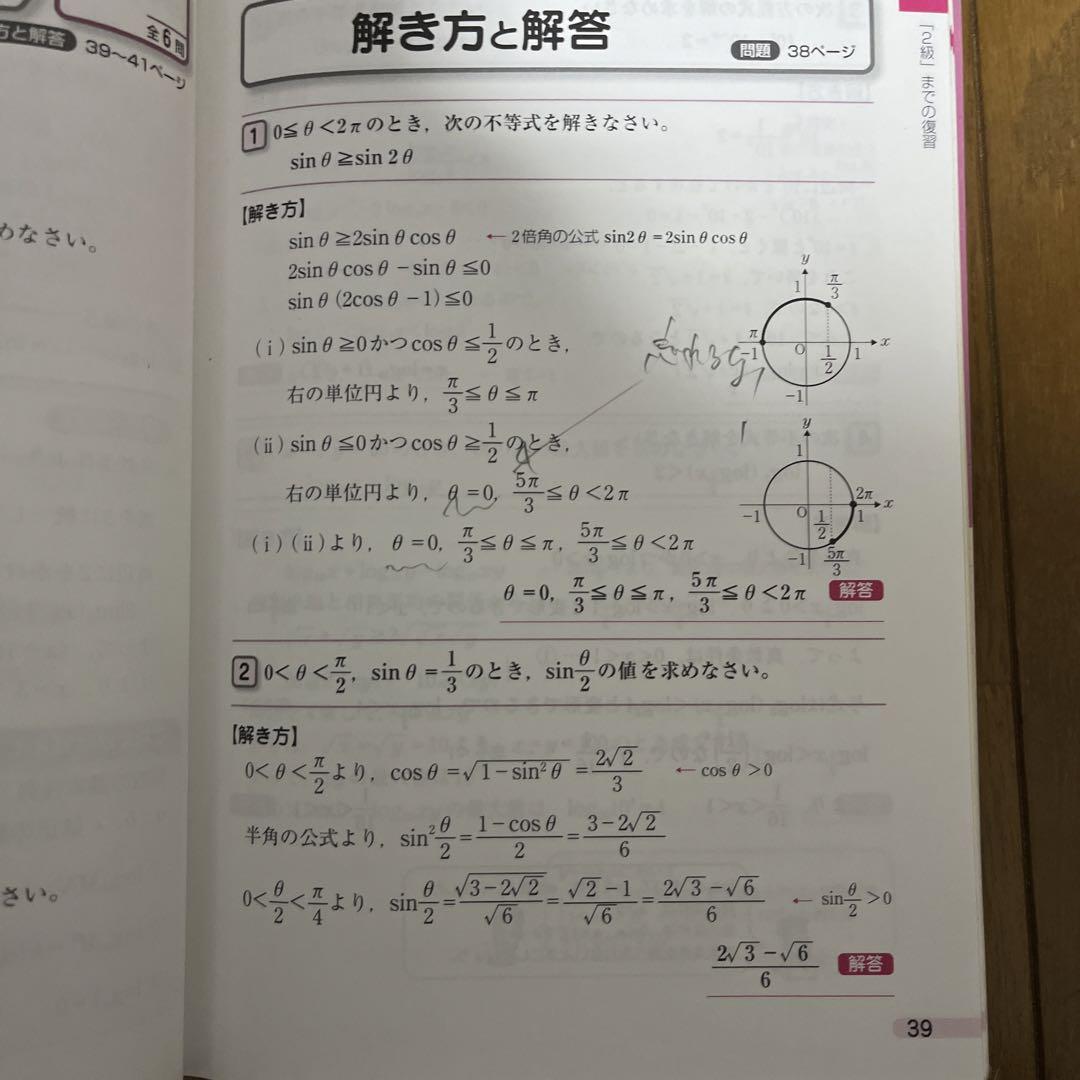 方と解答
39〜41ページ
全6問
めなさい。
さい。
解き方と解答
問題 38ページ
「2級」までの復習
1 0≦θ<2πのとき，次の不等式を解きなさい。
sinθ≧sin2θ
【解き方】
sinθ≧2sinθcosθ ←2倍角の公式 sin2θ=2sinθcosθ
2sinθcosθ−sinθ≦0
sinθ(2cosθ−1)≦0
(ⅰ) sinθ≧0かつcosθ≦1/2のとき，
右の単位円より，π/3≦θ≦π
y 1 π/3 π −1 O 1/2 1 x −1
忘れるな，
(ⅱ) sinθ≦0かつcosθ≧1/2のとき，
右の単位円より，θ=0，5π/3≦θ<2π
y 1 2π −1 O 1/2 1 x −1 5π/3
(ⅰ)(ⅱ)より，θ=0，π/3≦θ≦π，5π/3≦θ<2π
θ=0，π/3≦θ≦π，5π/3≦θ<2π 解答
2 0<θ<π/2，sinθ=1/3のとき，sinθ/2の値を求めなさい。
【解き方】
0<θ<π/2より，cosθ=√(1−sin²θ)=2√2/3 ←cosθ>0
半角の公式より，sin²θ/2=(1−cosθ)/2=(3−2√2)/6
0<θ/2<π/4より，sinθ/2=√(3−2√2)/√6=(√2−1)/√6=(2√3−√6)/6 ←sinθ/2>0
(2√3−√6)/6 解答
39